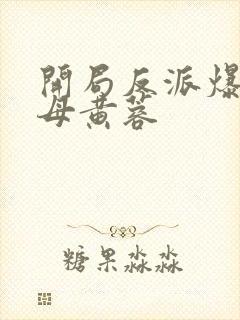 開局反派爆
母黃蓉
糖果淼淼